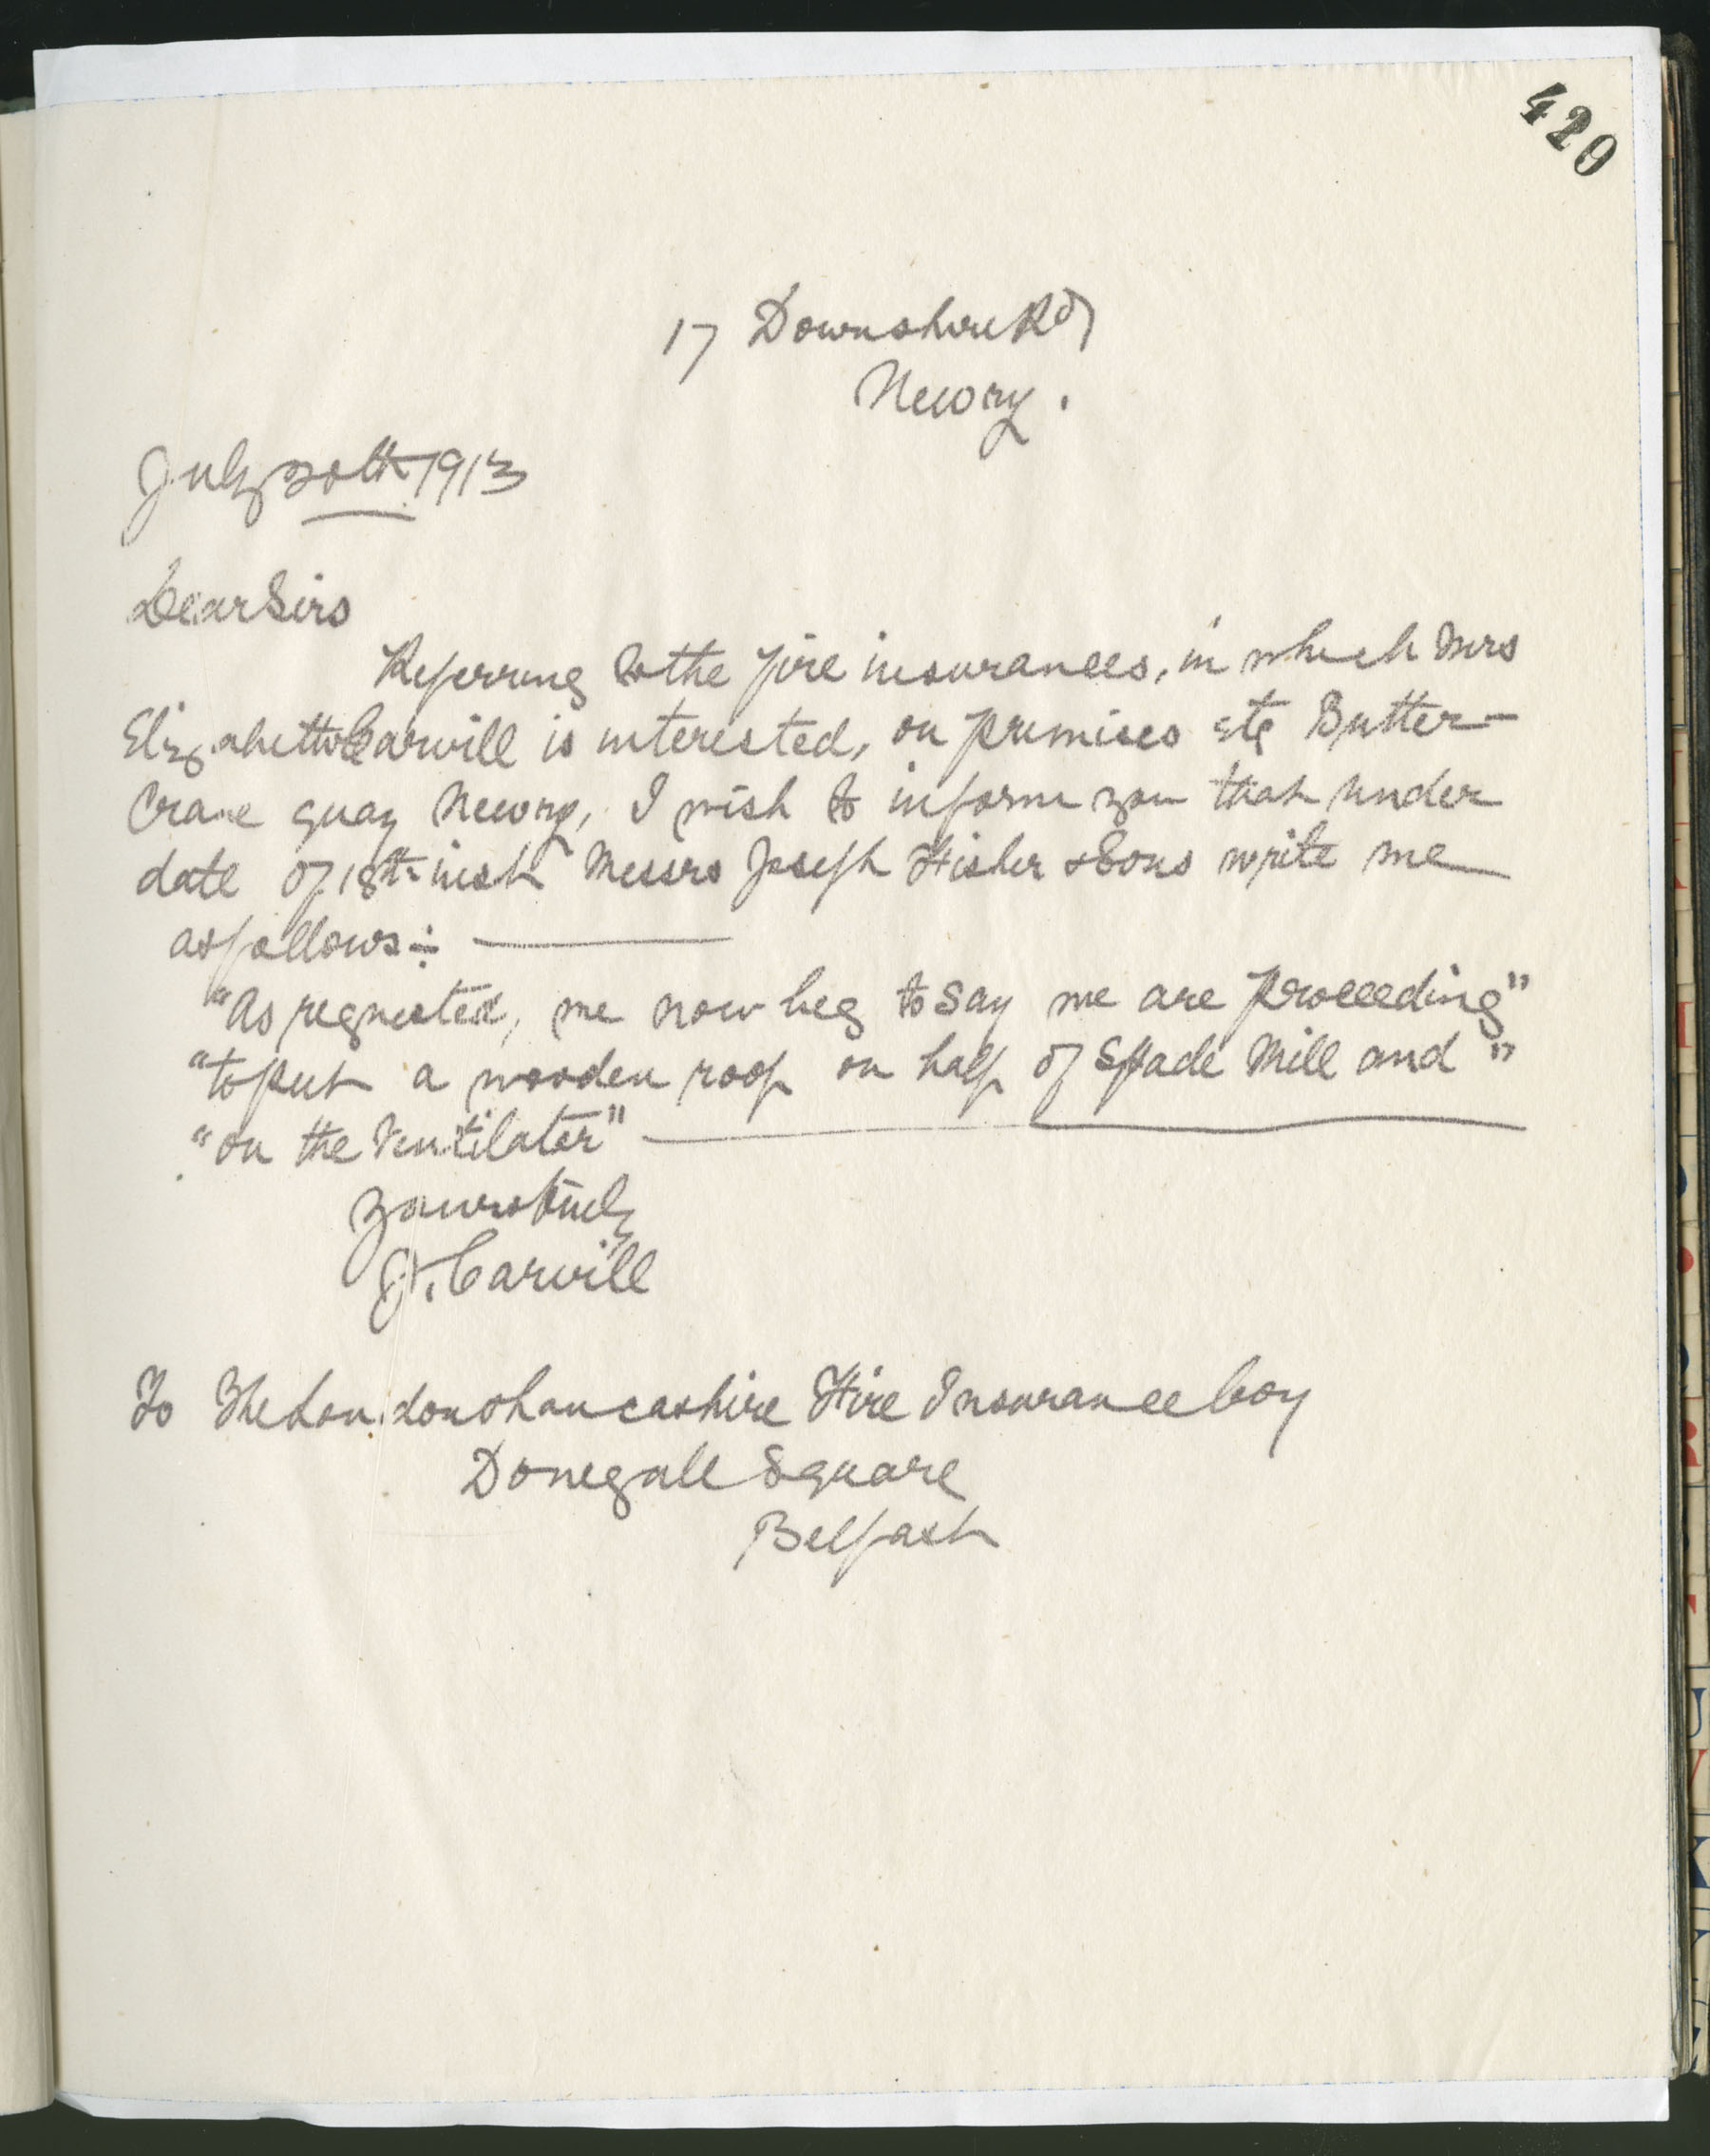 420
17 Downshire Rd
Newry.
July 20th 1913
Dear Sirs
Referring to the fire insurances, in which Mrs
Elizabeth Carvill is interested, on premises etc Butter-
Crane quay Newry, I wish to inform you that under
date of 18th inst Messrs Joseph Fisher & Sons write me
as follows:-
"As requested, we now beg to say we are proceeding"
"to put a wooden roof on half of Spade Mill and"
"on the Ventilator"
Yours truly
J. Carvill
To The London & Lancashire Fire Insurance Coy
Donegall Square
Belfast